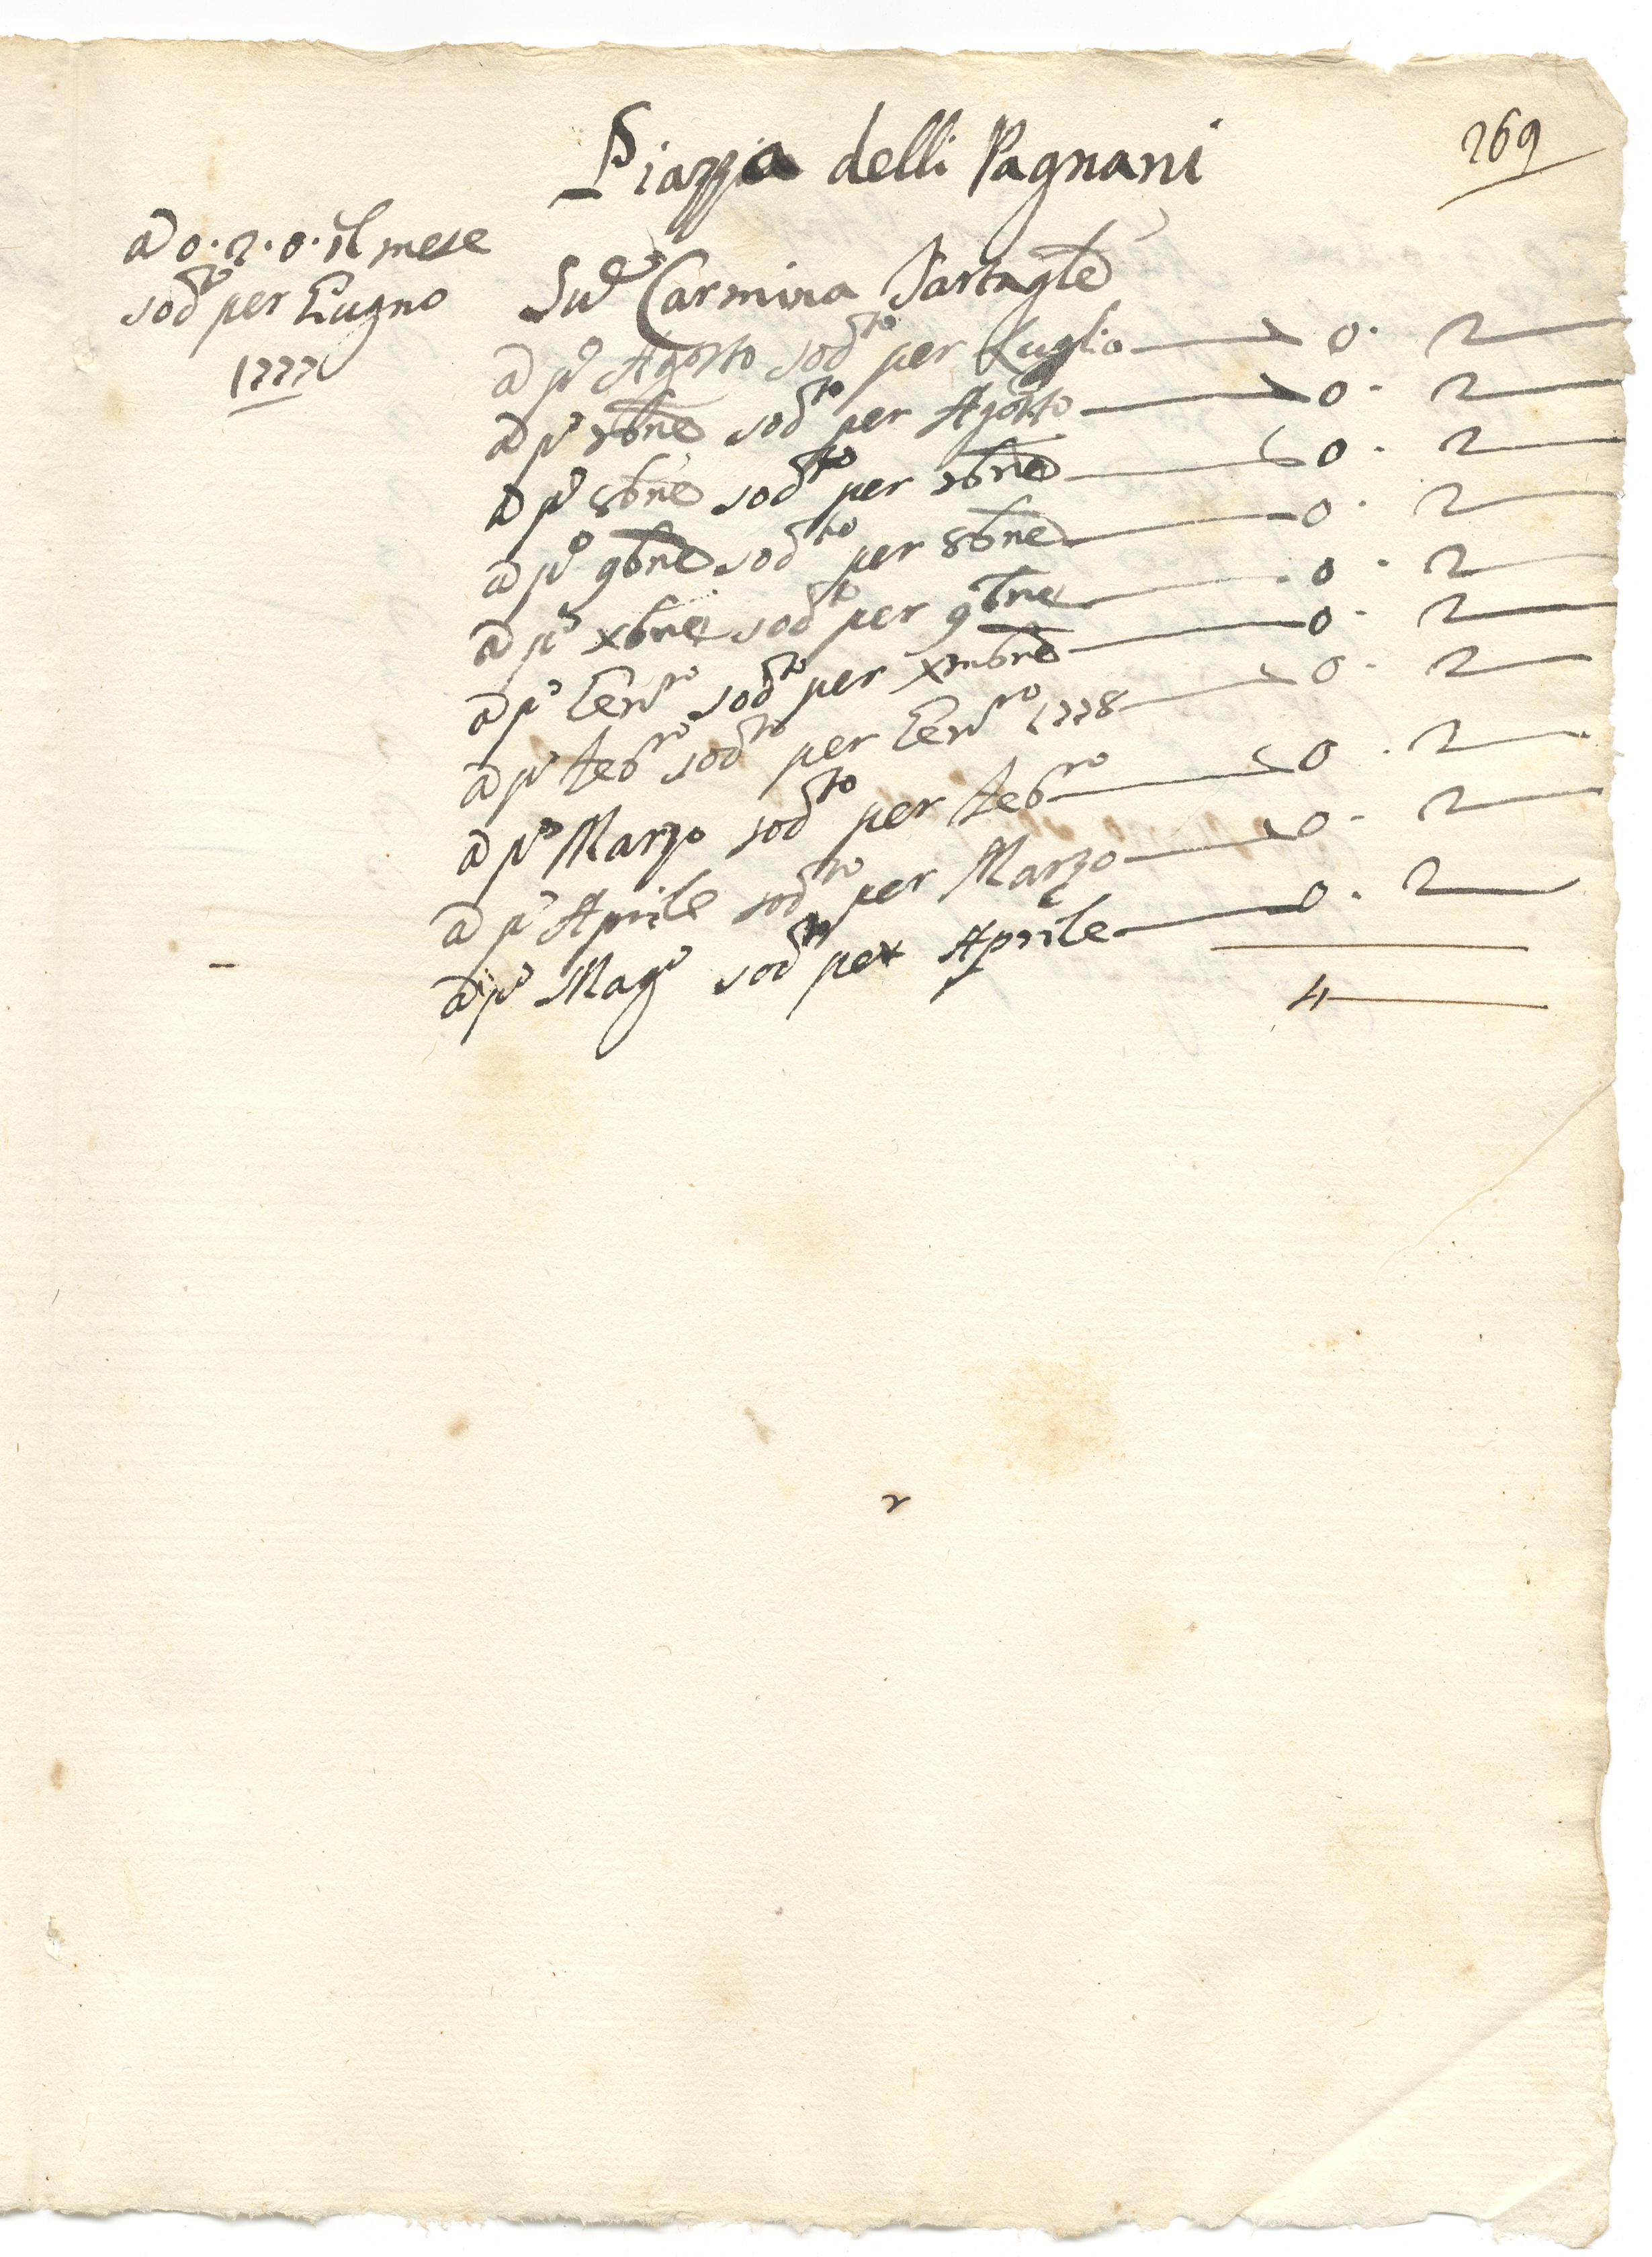 269
Piazza delli Pagnani
a 0.2.0. il mese
sodto per Giugno
1777
Suor Carmina Tartaglie
a po Agosto sodto per Luglio 0. 2
a po 7bre sodto per Agosto 0. 2
a po 8bre sodto per 7bre 0. 2
a po 9bre sodto per 8bre 0. 2
a po xbre sodto per 9bre 0. 2
a po Genro sodto per xmbre 0. 2
a po Febro sodto per Genro 1778 0. 2
a po Marzo sodto per Febro 0. 2
a po Aprile sodto per Marzo 0. 2
a po Mago sodto per Aprile 0. 2
4